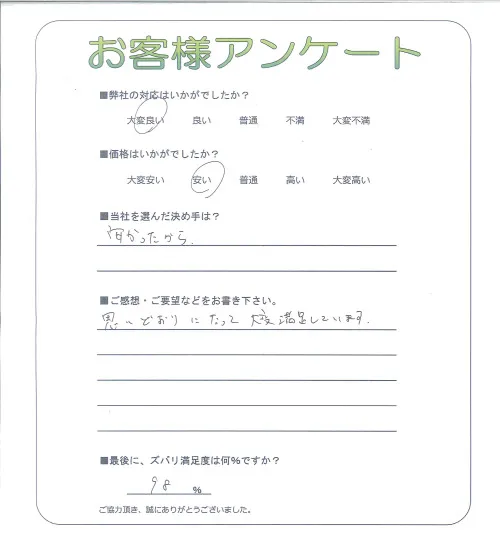 お客様アンケート
■弊社の対応はいかがでしたか？
大変良い 良い 普通 不満 大変不満
■価格はいかがでしたか？
大変安い 安い 普通 高い 大変高い
■当社を選んだ決め手は？
かったから.
■ご感想・ご要望などをお書き下さい。
思いどおりになって大変満足しています.
■最後に、ズバリ満足度は何%ですか？
98 %
ご協力頂き、誠にありがとうございました。